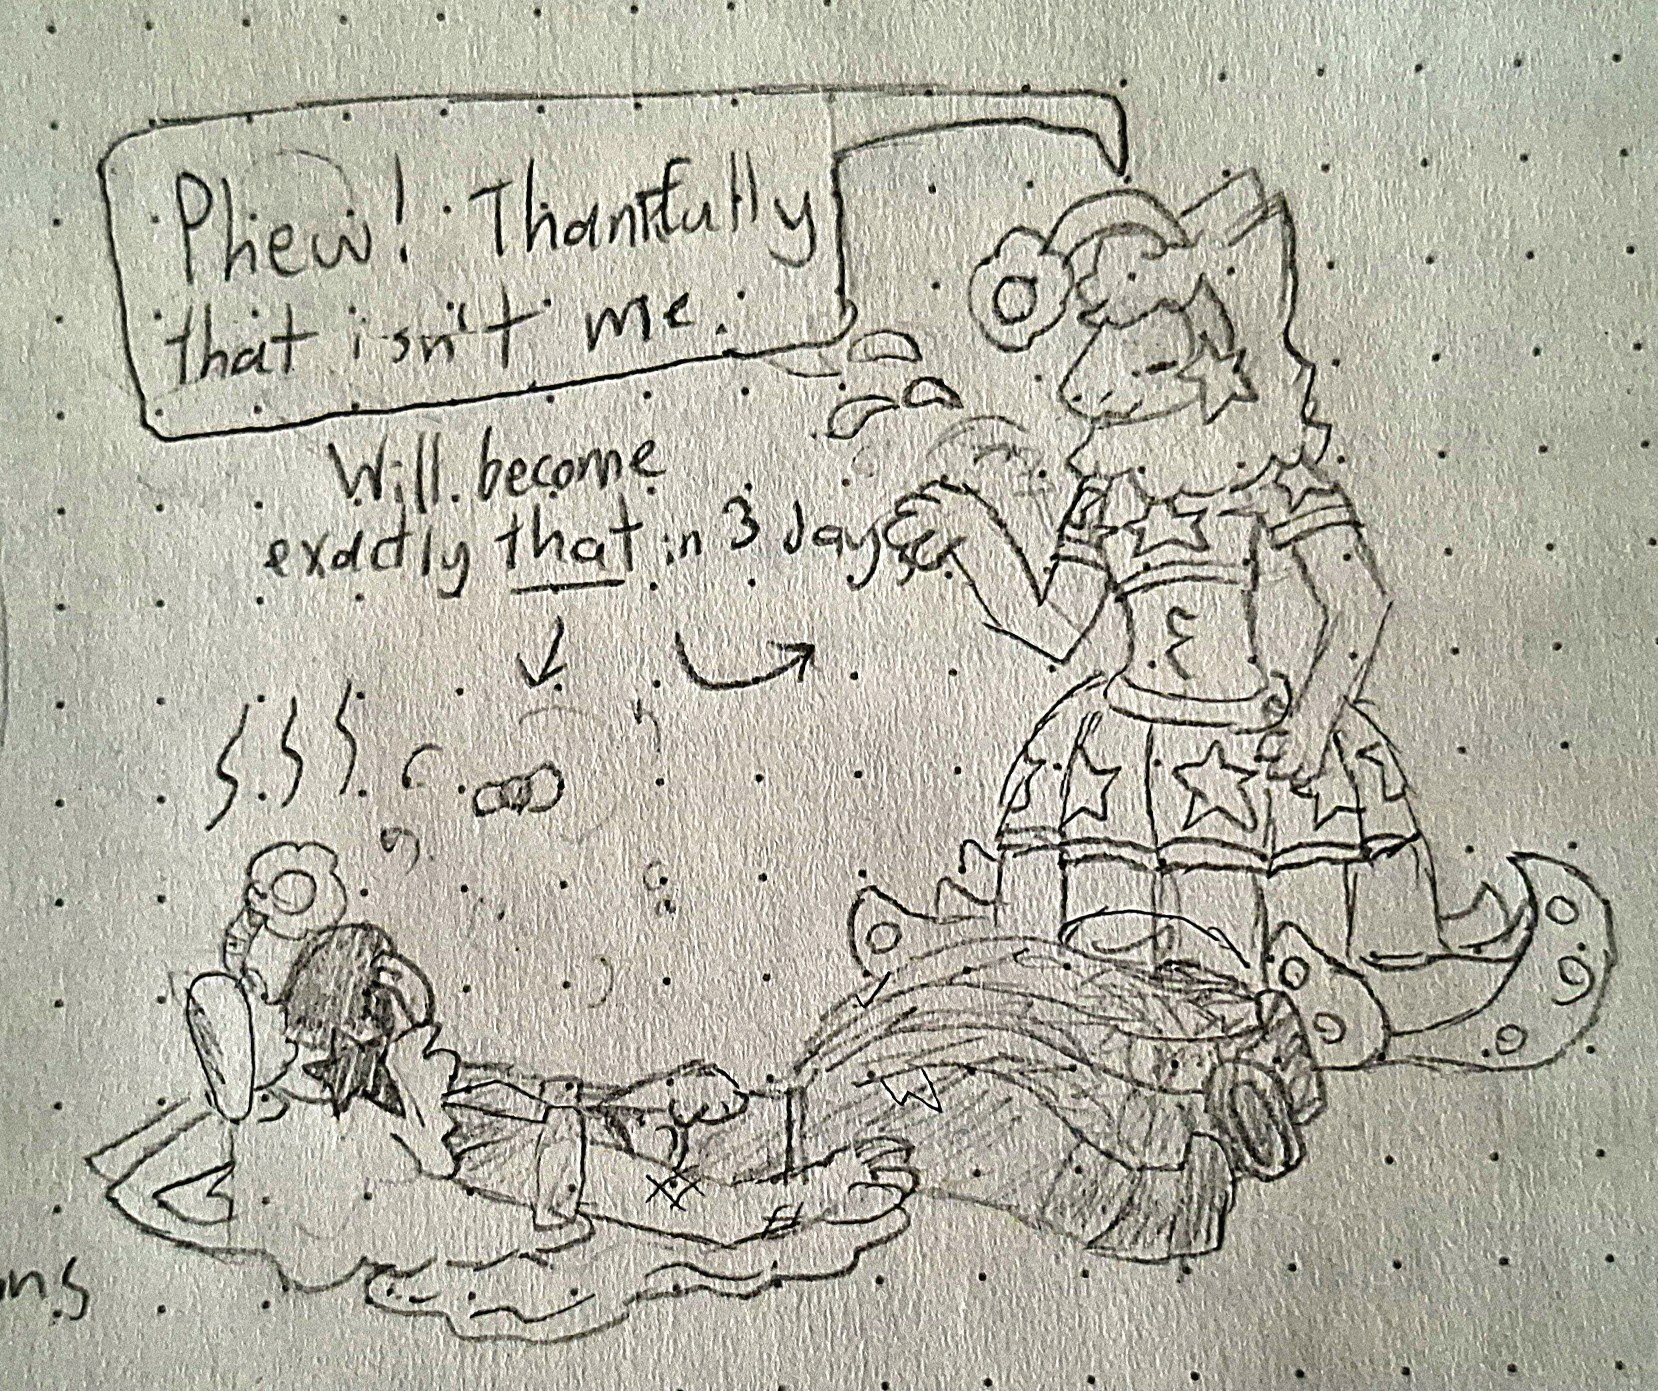 Phew! Thankfully
that isn't me.
Will become
exactly that in 3 days